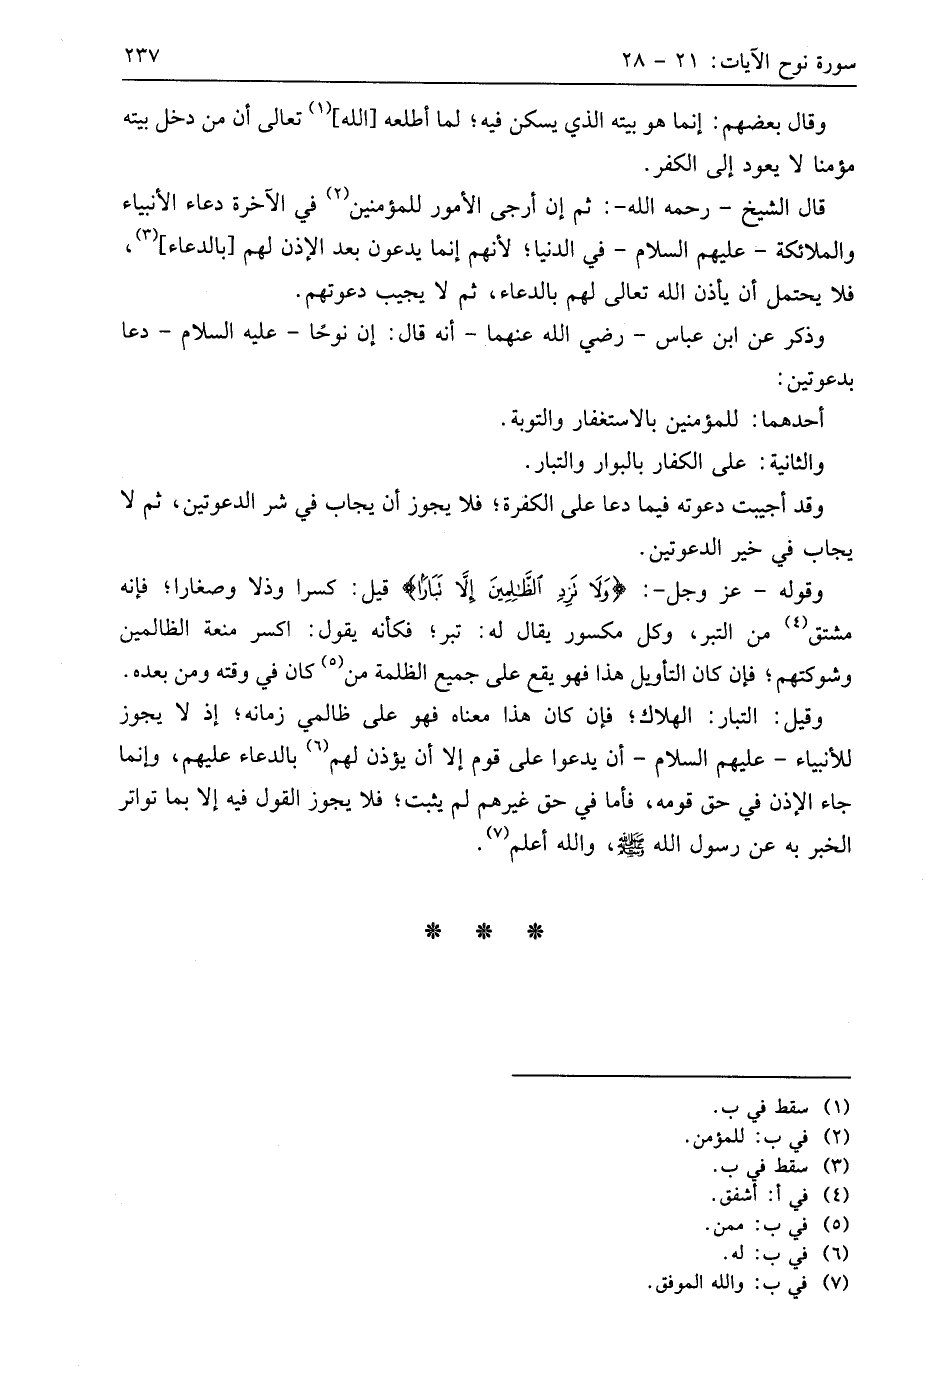 سورة نوح الآيات: ٢١ - ٢٨
٢٣٧
وقال بعضهم: إنما هو بيته الذي يسكن فيه؛ لما أطلعه [الله](١) تعالى أن من دخل بيته
مؤمنا لا يعود إلى الكفر.
قال الشيخ - رحمه الله-: ثم إن أرجى الأمور للمؤمنين(٢) في الآخرة دعاء الأنبياء
والملائكة - عليهم السلام - في الدنيا؛ لأنهم إنما يدعون بعد الإذن لهم [بالدعاء](٣)،
فلا يحتمل أن يأذن الله تعالى لهم بالدعاء، ثم لا يجيب دعوتهم.
وذكر عن ابن عباس - رضي الله عنهما - أنه قال: إن نوحًا - عليه السلام - دعا
بدعوتين:
أحدهما: للمؤمنين بالاستغفار والتوبة.
والثانية: على الكفار بالبوار والتبار.
وقد أجيبت دعوته فيما دعا على الكفرة؛ فلا يجوز أن يجاب في شر الدعوتين، ثم لا
يجاب في خير الدعوتين.
وقوله - عز وجل-: ﴿وَلَا نَزِدِ ٱلظَّٰلِمِينَ إِلَّا تَبَارًا﴾ قيل: كسرا وذلا وصغارا؛ فإنه
مشتق(٤) من التبر، وكل مكسور يقال له: تبر؛ فكأنه يقول: اكسر منعة الظالمين
وشوكتهم؛ فإن كان التأويل هذا فهو يقع على جميع الظلمة من(٥) كان في وقته ومن بعده.
وقيل: التبار: الهلاك؛ فإن كان هذا معناه فهو على ظالمي زمانه؛ إذ لا يجوز
للأنبياء - عليهم السلام - أن يدعوا على قوم إلا أن يؤذن لهم(٦) بالدعاء عليهم، وإنما
جاء الإذن في حق قومه، فأما في حق غيرهم لم يثبت؛ فلا يجوز القول فيه إلا بما تواتر
الخبر به عن رسول الله ﷺ، والله أعلم(٧).
* * *
(١) سقط في ب.
(٢) في ب: للمؤمن.
(٣) سقط في ب.
(٤) في أ: أشفق.
(٥) في ب: ممن.
(٦) في ب: له.
(٧) في ب: والله الموفق.